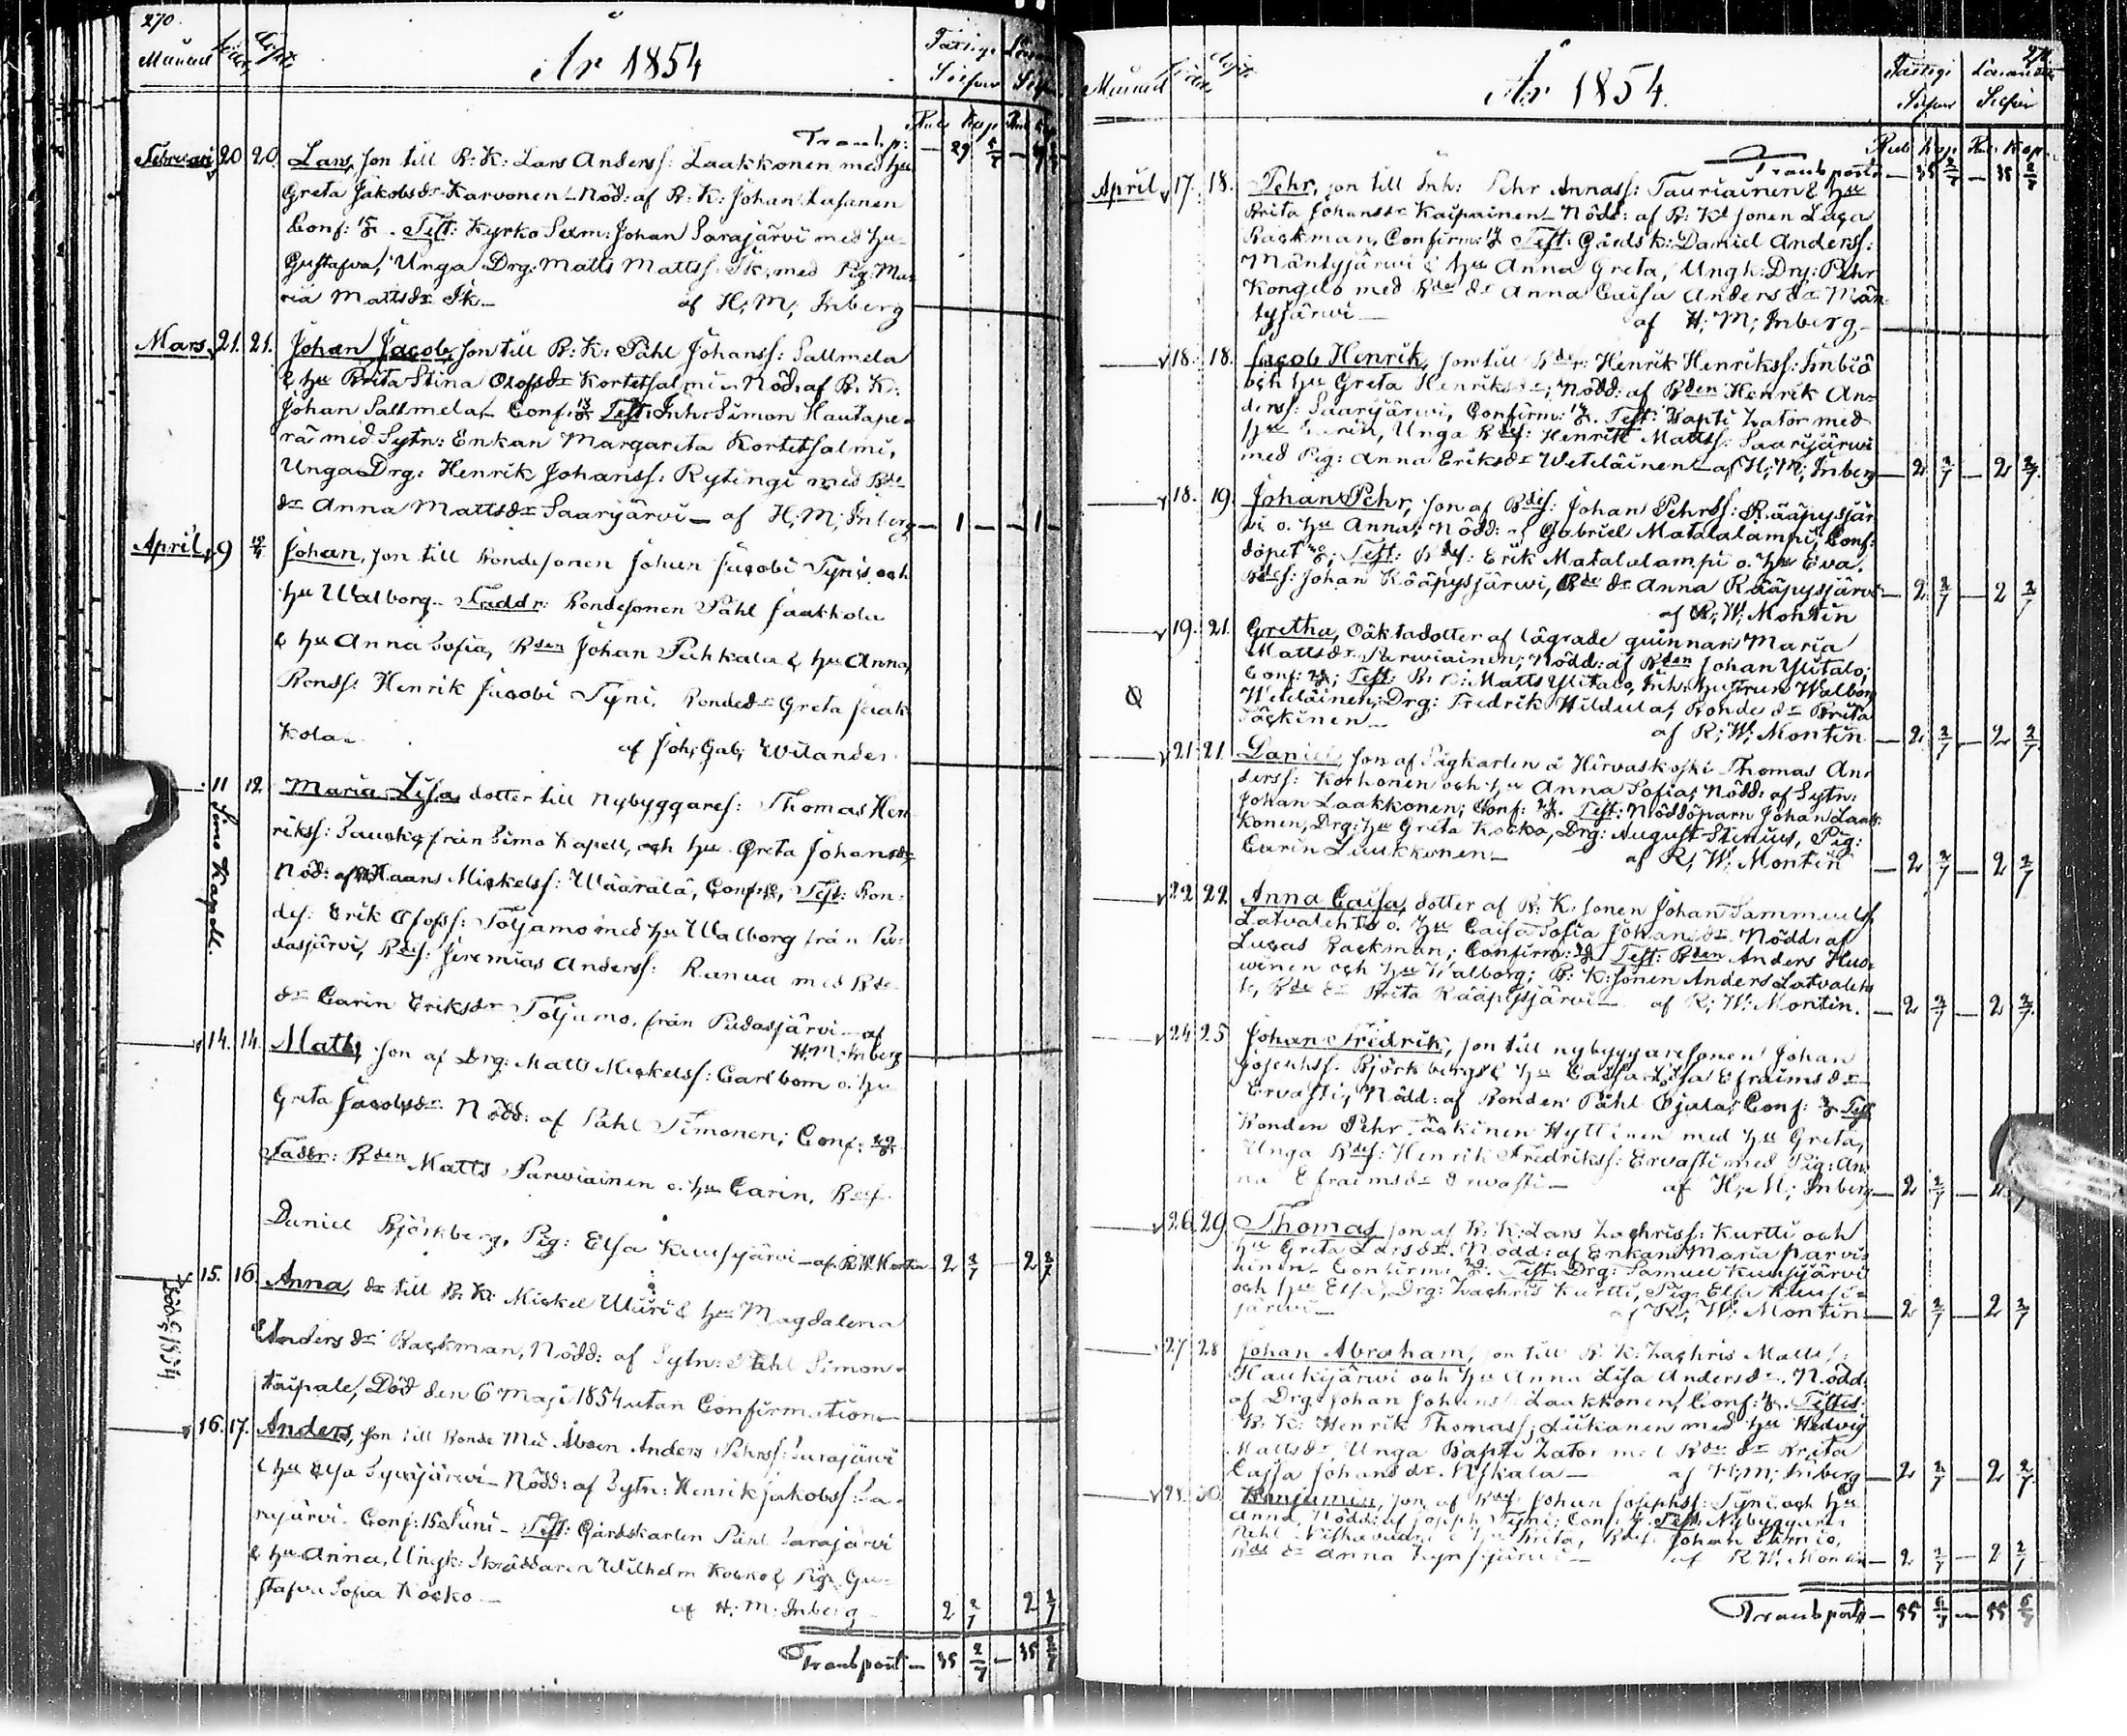 270.
Månad
År 1854
Fattige Silfver
Rub Kop Rub Kop
Transp: — 29 — 29
Februari 20 20. Lars, son till B: K: Lars Anderss: Laakkonen med hu
Greta Jakobsdr Karvonen – Nöd: af B: K: Johan
Conf: Test: Kyrko Sexm: Johan Sarajärvi med hu
Gustafva, Unga Drg: Matts Mattss: Ik, med Pig: Ma-
ria Mattsdr Ik – af H: M: Inberg
Mars 21. 21. Johan Jacob, son till B: K: Påhl Johanss: Sallmela
& hu Brita Stina Olofsdr Kortetsalmi – Nöd: af B: K:
Johan Sallmela – Conf: Test: Inh: Simon Hautape-
rä med Sytn: Enkan Margareta Kortetsalmi,
Unga Drg: Henrik Johanss: Rytingi med Bde
dr Anna Mattsdr Saarijärvi – af H: M: Inberg — 1 — — 1 —
April 9 Johan, son till Bondesonen Johan Jacobi Tyni och
hu Walborg – Faddr: Bondesonen Påhl Jaakkola
& hu Anna Sofia, Bden Johan Pahkala & hu Anna,
Bondss: Henrik Jacobi Tyni, Bondedr Greta Jaak-
kola – af Joh: Gab: Wilander
11 12. Maria Lisa, dotter till Nybyggares: Thomas Hen-
Simo Kapell.
rikss: från Simo Kapell, och hu Greta Johansdr
Nöd: af Maans Mickelss: Wäärälä, Conf: Test: Bon-
des: Erik Olofss: Toljamo med hu Walborg från Pu-
dasjärvi, Bdes: Jeremias Anderss: Ranua med Bde
dr Carin Eriksdr Toljamo, från Pudasjärvi – af
H: M: Inberg
14. 14. Matts, son af Drg: Matts Mickelss: Carlbom o. hu
Greta Jacobsdr. Nödd: af Påhl Simonen; Conf:
Faddr: Bden Matts Parviainen o. hu Carin, Bdes:
Daniel Björkberg, Pig: Elsa Kuusijärvi – af R W Montin 2 2/7 2 2/7
15. 16. Anna, dr till B: K: Mickel & hu Magdalena
Andersdr Backman, Nödd: af Sytn: Påhl Simon-
Död 6/5 1854.
taipale, Död den 6 Maji 1854 utan Confirmation –
16. 17. Anders, son till Bonde Anders Pehrss: Sarajärvi
& hu Elsa – Nödd: af Sytn: Henrik Jakobss: Sa-
rajärvi. Conf: 15 Juni – Test: Gårdskarlen Påhl Sarajärvi
& hu Anna, Ungk: Skräddaren Wilhelm Kocko & Pig: Gu-
stafva Sofia Kocko – af H: M: Inberg 2 2/7 2 2/7
Transport — 35 2/7 — 35 2/7
271.
Månad
År 1854.
Fattige Silfver
Rub Kop Rub Kop
Transport — 35 2/7 — 35 2/7
April 17. 18. Pehr, son till Inh: Pehr Annass: Tauriainen & hu
Brita Johansdr Kaipainen – Nödd: af B: Kd sonen Luca
Backman, Confirm: Test: Gårdsk: Daniel Anderss:
Mäntyjärvi & hu Anna Greta, Ungk: Drg: Pehr
Kongelo med Bde dr Anna Caisa Andersdr Män-
tyjärvi – af H: M: Inberg –
18. 18. Jacob Henrik, son till Henrik Henrikss: Simbiö
och hu Greta Henriksdr; Nödd: af Bden Henrik An-
derss: Saarijärvi, Confirm: Test: Bapti Zator med
hu Unga Bdes: Henrik Mattss: Saarijärvi
med Pig: Anna Eriksdr Weteläinen – af H: M: Inberg — 2 2/7 — 2 2/7
18. 19. Johan Pehr, son af Bdes: Johan Pehrss: Rääpysjär-
vi o. hu Anna; Nödd: af Gabriel Matalalampi, Conf:
döpet Test: Bdes: Erik Matalalampi o. hu Eva.
Bdes: Johan Rääpysjärwi, Bde dr Anna Rääpysjärvi — 2 2/7 — 2 2/7
af R: W: Montin
19. 21. Gretha, oäkta dotter af lägrade quinnan Maria
Mattsdr Parwiainen; Nödd: af Bden Johan Ylitalo;
Conf: Test: B: K: Matts Ylitalo, Inh: hustrun Walborg
Weteläinen, Drg: Fredrik Hildula, Bonde dr Brita
Säckinen – af R: W: Montin — 2 2/7 — 2 2/7
21. 21. Daniel, son af Sågkarlen å Hirvaskoski Thomas An-
derss: Korhonen och hu Anna Sofia; Nödd: af Sytn:
Johan Laakkonen; Conf: Test: Nöddöparn Johan Laak-
konen, Drg: hu Greta Kocko, Drg: August Stenius, Pig:
Carin Laukkonen – af R: W: Montin — 2 2/7 — 2 2/7
22. 22. Anna Caisa, dotter af B: K: sonen Johan Sammuels
Latvalehto o. hu Caisa Sofia Johansdr. Nödd: af
Lucas Backman; Confirm: Test: Bden Anders Huo-
winen och hu Walborg; B: K: sonen Anders Latvaleh-
to, Bde dr Brita Rääpysjärvi – af R: W: Montin. — 2 2/7 — 2 2/7
24 25 Johan Fredrik, son till nybyggaresonen Johan
Josephss: Björkberg & hu Caisa Lisa Efraimsdr
Ervasti; Nödd: af Bonden Påhl Ojala; Conf: Test:
Bonden Pehr Säckinen Hyttinen med hu Greta,
Unga Bdes: Henrik Fredrikss: Ervasti med Pig: An-
na Efraimsdr Ervasti – af H: M: Inberg — 2 2/7 — 2
26. 29. Thomas, son af B: K: Lars Zachriss: Kurtti och
hu Greta Larsdr. Nödd: af Enkan Maria Parvi-
ainen – Confirm: Test: Drg: Samuel Kuusijärvi
och hu Elsa, Drg: Zachris Kurtti, Pig: Elsa Kuusi-
järvi – af R: W: Montin — 2 2/7 — 2 2/7
27 28 Johan Abraham, son till B: K: Zachris Mattss:
Haukijärwi och hu Anna Lisa Andersdr. Nödd:
af Drg: Johan Johanss: Laakkonen, Conf: Testes:
B: K: Henrik Thomass: Liikanen med hu Hedvig
Mattsdr, Unga Bapti Zator med Bde dr Brita
Cajsa Johansdr – af H: M: Inberg — 2 2/7 — 2 2/7
28. 30. Benjamin, son af Bdes: Johan Josephss: Tyni och hu
Anna, Nödd: af Joseph Tyni; Conf: Test: Nybyggaren
Pehl & hu Brita, Bdes: Johan
Bde dr Anna – af R W: Montin — 2 2/7 — 2 2/7
Transport — 55 6/7 — 55 6/7